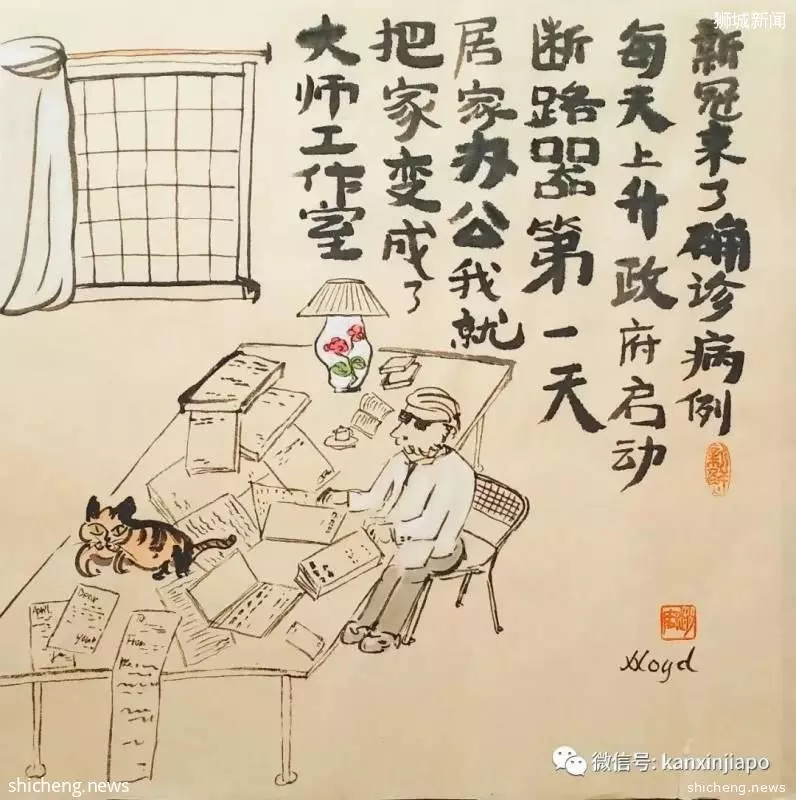 狮城新闻
新冠来了确诊病例
每天上升政府启动
断路器第一天
居家办公我就
把家变成了
大师工作室
April
Dear
To
From
Lloyd
微信号: kanxinjiapo
shicheng.news
shicheng.news